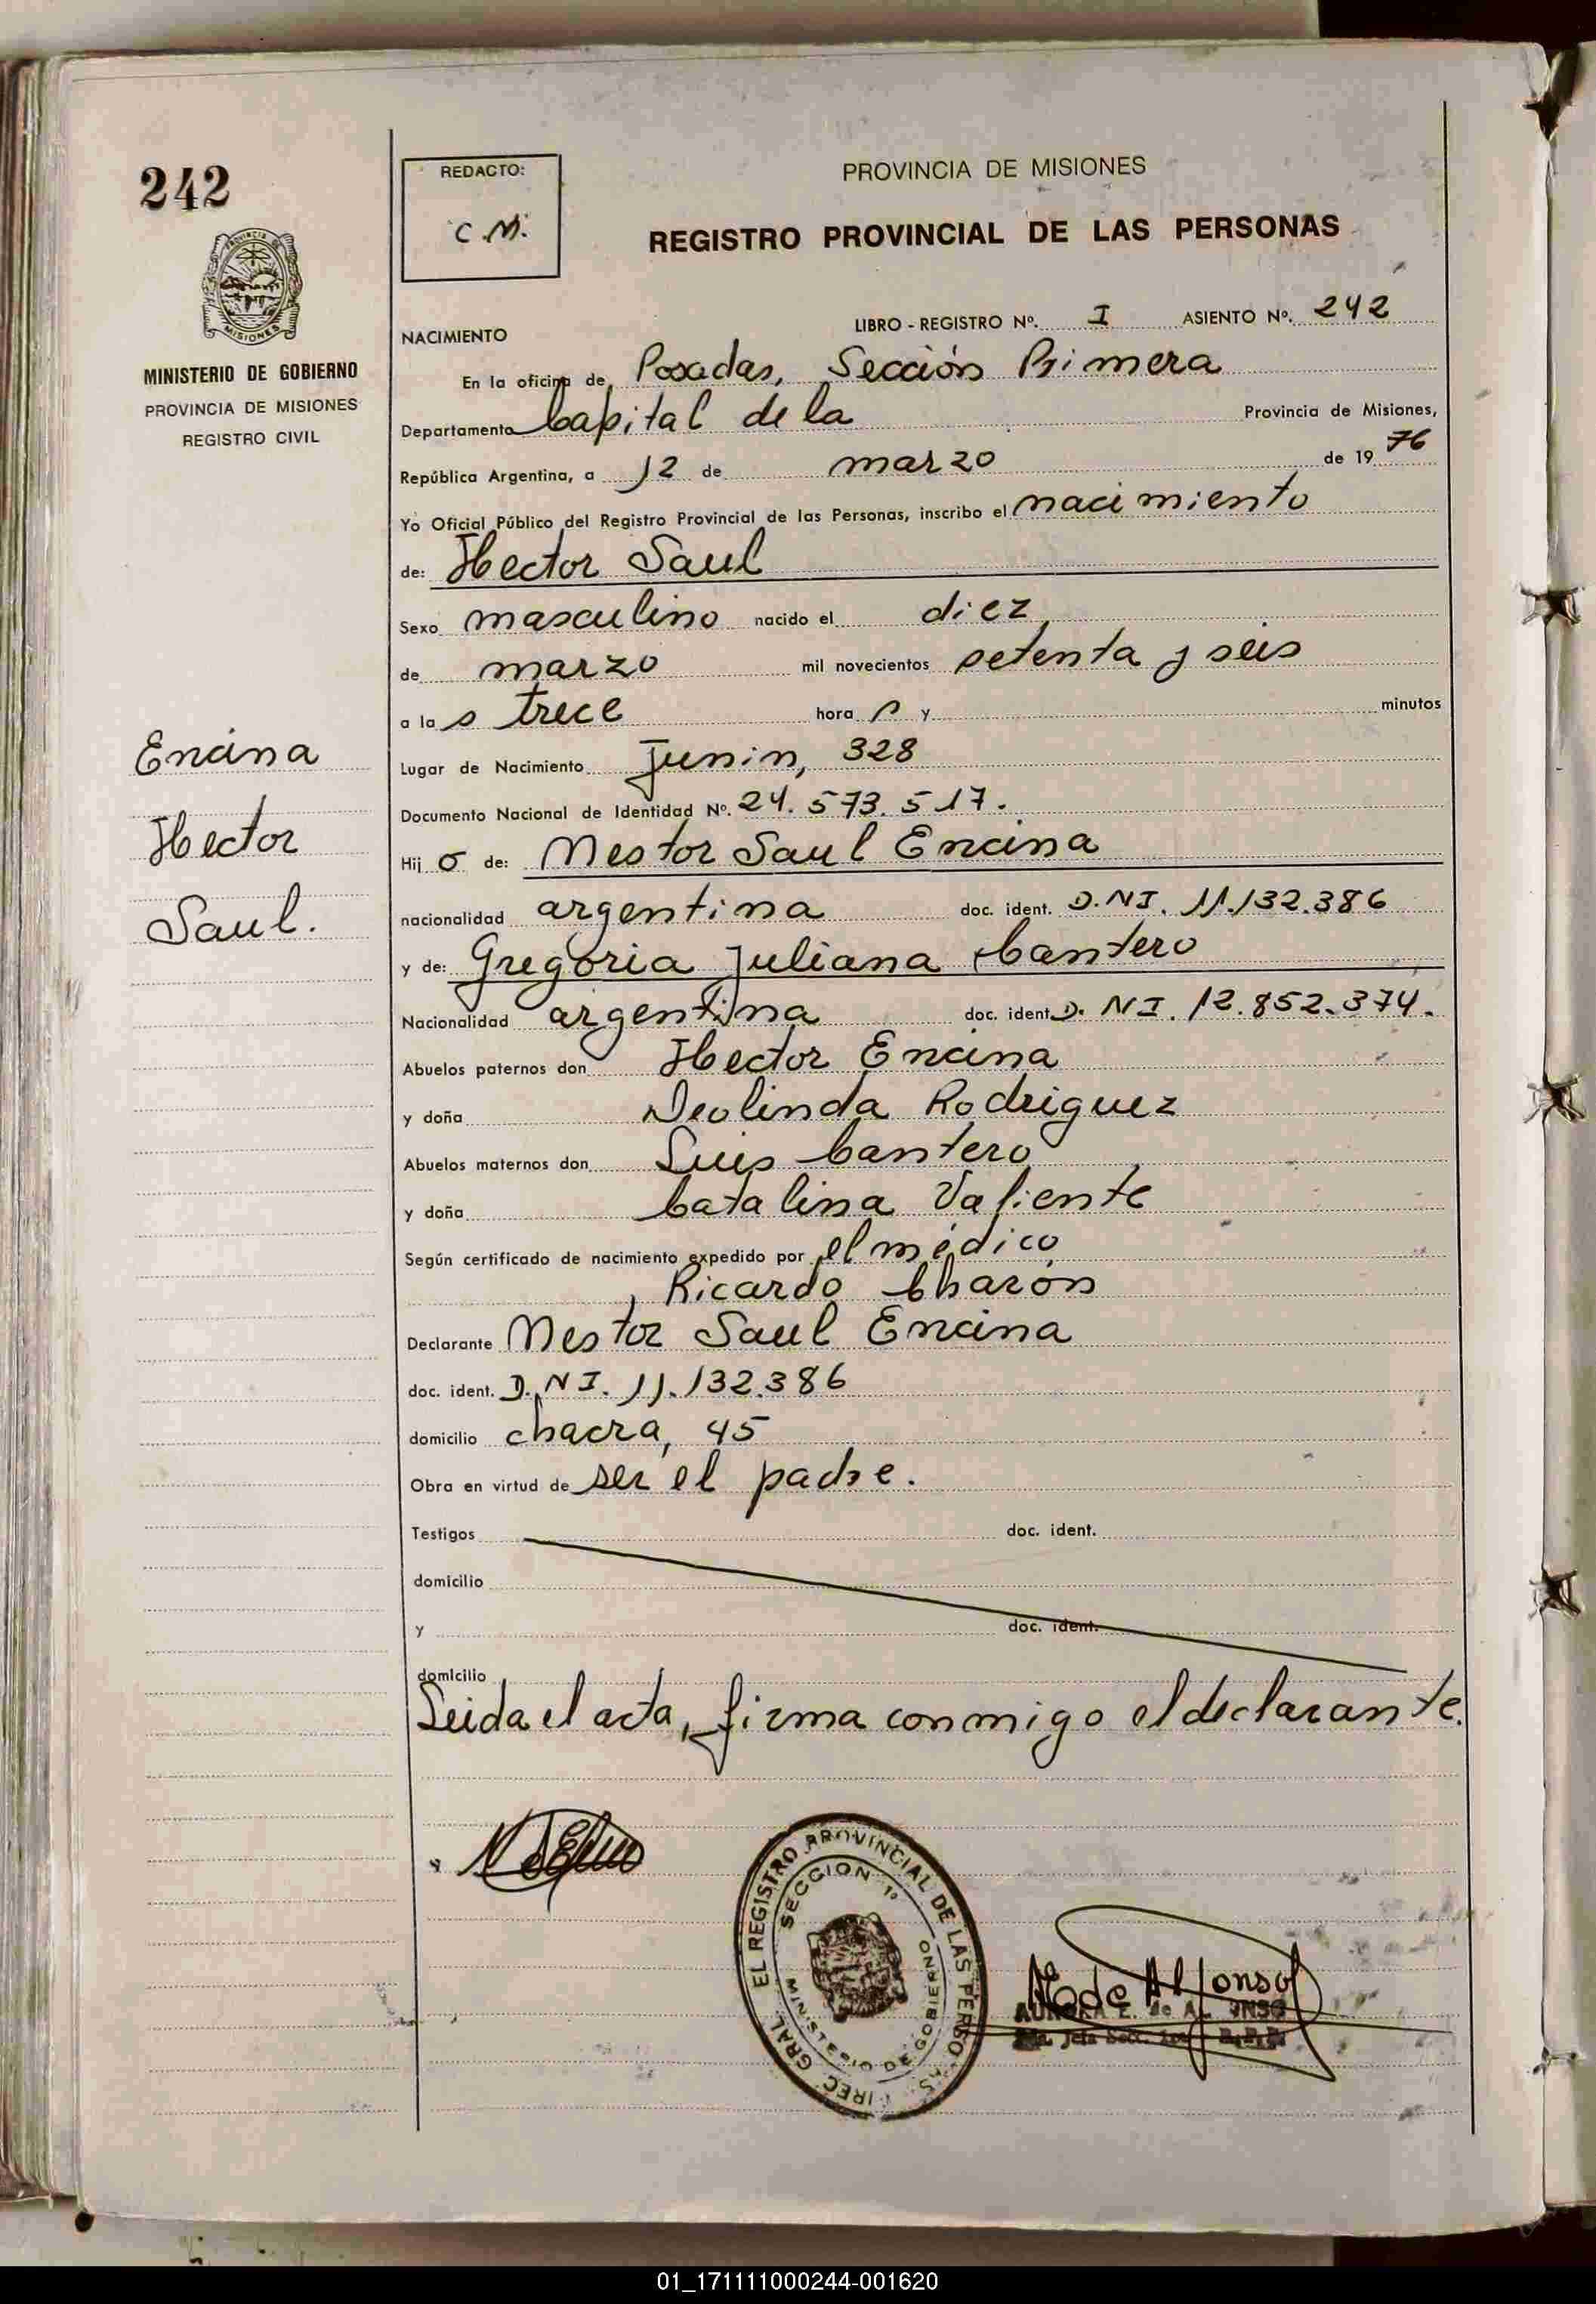 242
REDACTO:
C.M.
PROVINCIA DE MISIONES
REGISTRO PROVINCIAL DE LAS PERSONAS
PROVINCIA DE
MISIONES
MINISTERIO DE GOBIERNO
PROVINCIA DE MISIONES
REGISTRO CIVIL
NACIMIENTO
LIBRO - REGISTRO Nº. I ASIENTO Nº. 242
En la oficina de Posadas, Sección Primera
Departamento Capital de la Provincia de Misiones,
República Argentina, a 12 de marzo de 19 76
Yo Oficial Público del Registro Provincial de las Personas, inscribo el nacimiento
de: Hector Saul
Sexo masculino nacido el diez
de marzo mil novecientos setenta y seis
a la s trece hora s y minutos
Encina
Hector
Saul.
Lugar de Nacimiento Junin, 328
Documento Nacional de Identidad Nº. 24.573.517.
Hij o de: Nestor Saul Encina
nacionalidad argentina doc. ident. D.NI. 11.132.386
y de: Gregoria Juliana Cantero
Nacionalidad argentina doc. ident. D. NI. 12.852.374.
Abuelos paternos don Hector Encina
y doña Deolinda Rodriguez
Abuelos maternos don Luis Cantero
y doña Catalina Valiente
Según certificado de nacimiento expedido por el médico
Ricardo Charón
Declarante Nestor Saul Encina
doc. ident. D.NI. 11.132.386
domicilio chacra, 45
Obra en virtud de ser el padre.
Testigos doc. ident.
domicilio
y doc. ident.
domicilio
Leida el acta, firma conmigo el declarante.
EL REGISTRO PROVINCIAL DE LAS PERSONAS
SECCION 1º
MINISTERIO DE GOBIERNO
GRAL
A de Alfonso
AURORA E. de ALFONSO
01_171111000244-001620